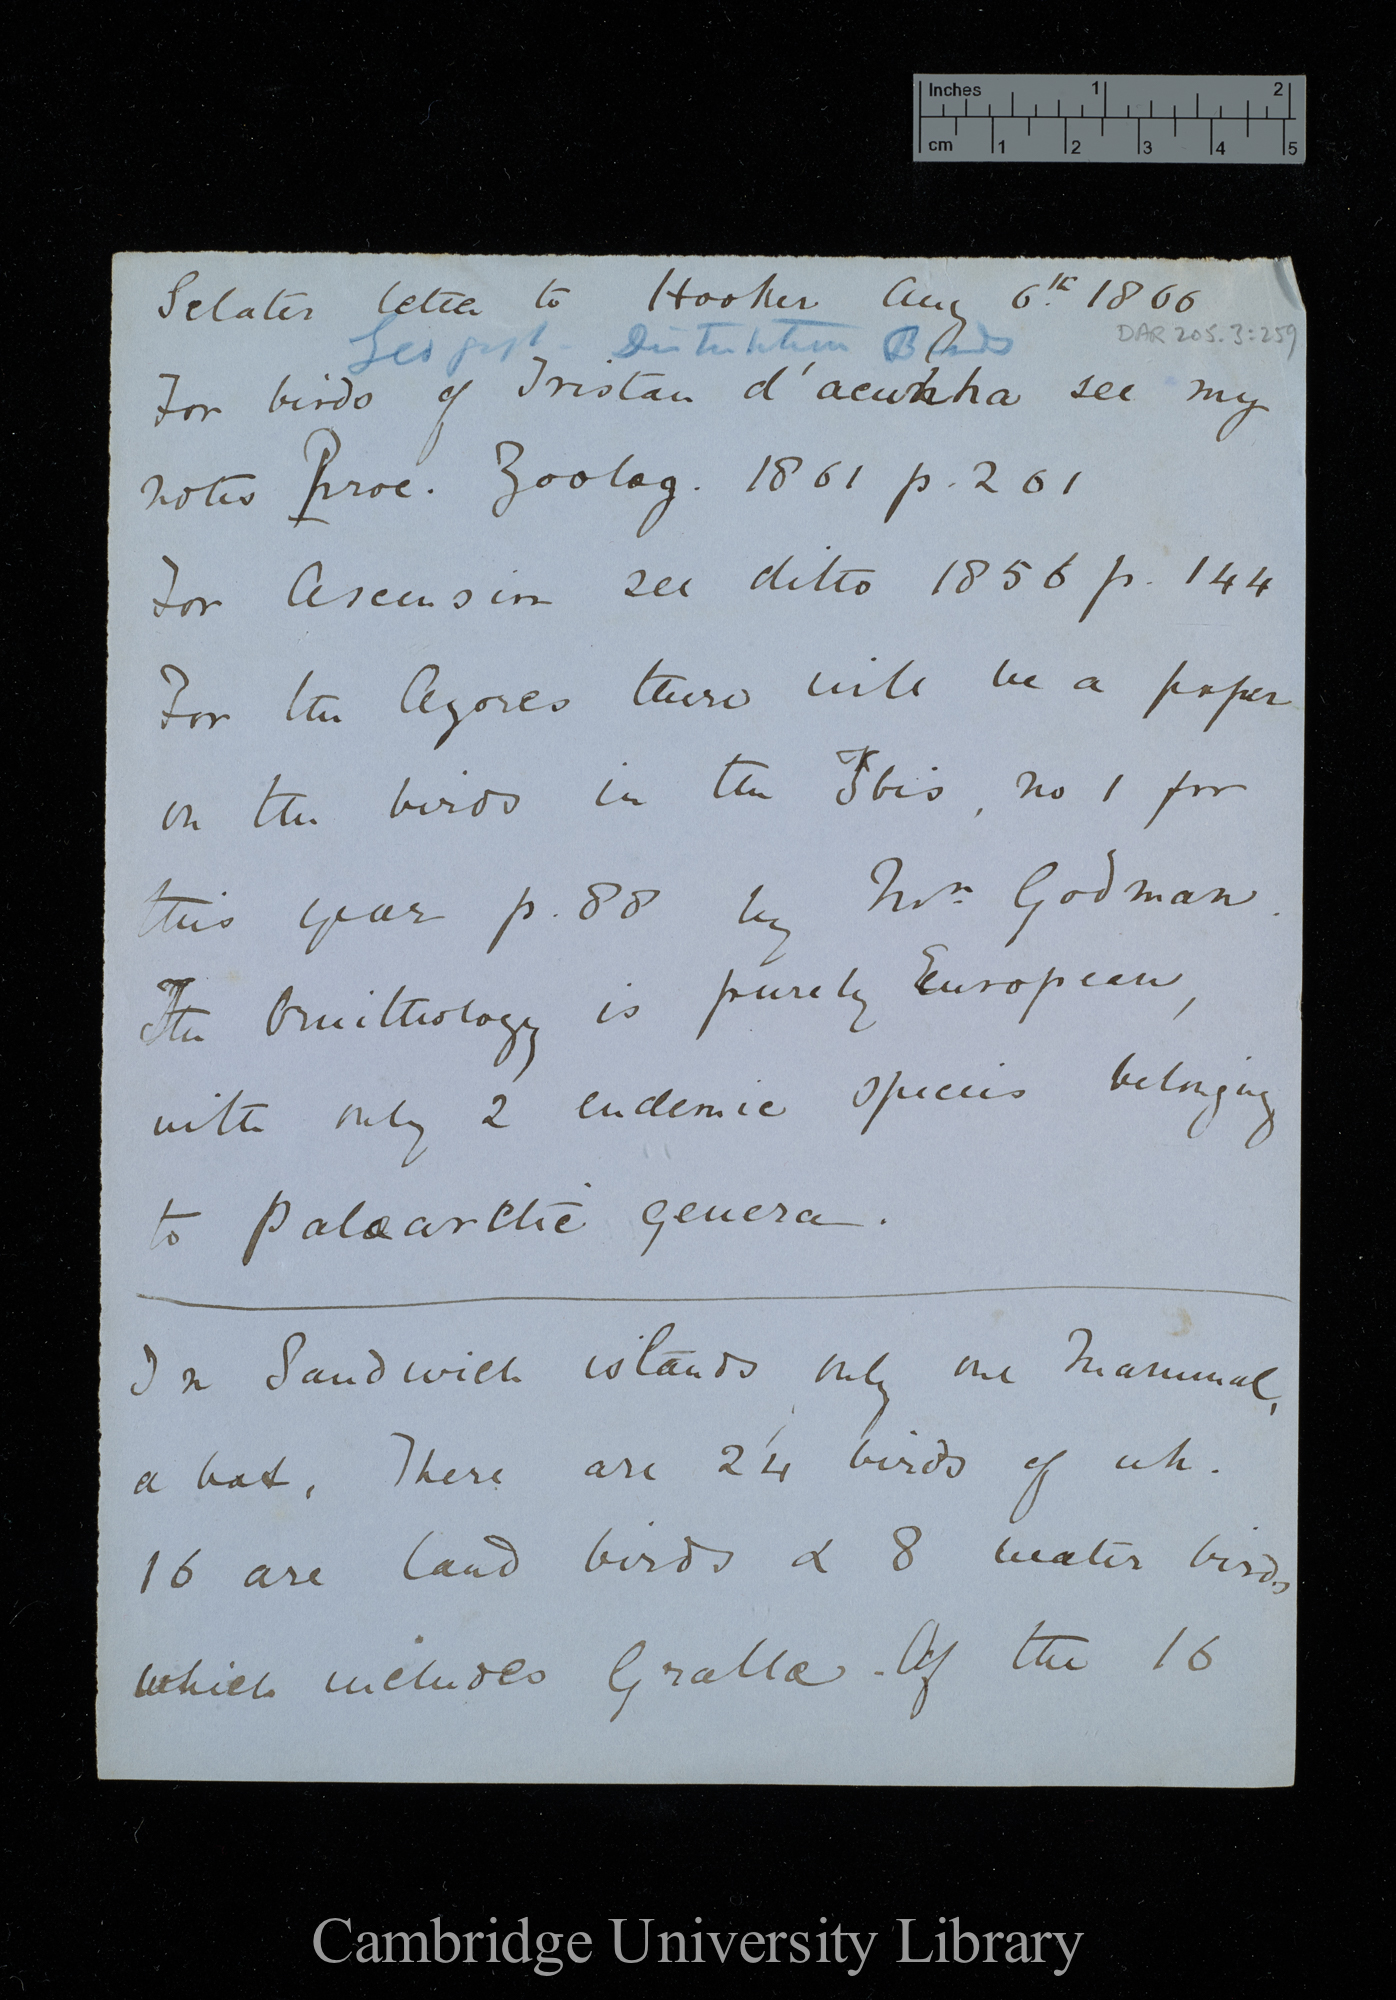 Inches 1 2
cm 1 2 3 4 5
Sclater letter to Hooker Aug 6.th 1866
Geograph. Distribution Birds
DAR 205.3:259
For birds of Tristan d'acunha see my
notes Proc. Zoolog. 1861 p. 261
For Ascension see ditto 1856 p. 144
For the Azores there will be a paper
on the birds in the Ibis, no 1 for
this year p. 88 by Mr. Godman.
The Ornithology is purely European,
with only 2 endemic species belonging
to Palæarctic genera.
In Sandwich islands only one Mammal,
a bat, There are 24 birds of wh.
16 are land birds & 8 water birds
which includes Grallæ. Of the 16
Cambridge University Library